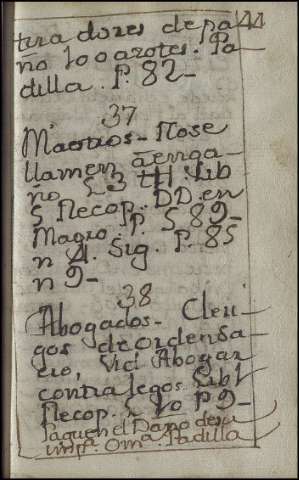 tira dores de pa 44
ño 100 azotes. Pa
dilla. P. 82-
37
Maridos - Nose
llamen a enga
ño L 3 tt. Lib
5 Recop. DD. en
Magro. P. 589-
n 4. Sig. P. 85
n 9-
38
Abogados - Cleri
gos de orden sa
cro, Vid Abogar
contra legos Lib 1
Recop. L 10 P 9-
Paguen el Daño de su
imp.ª Om.ª Padilla